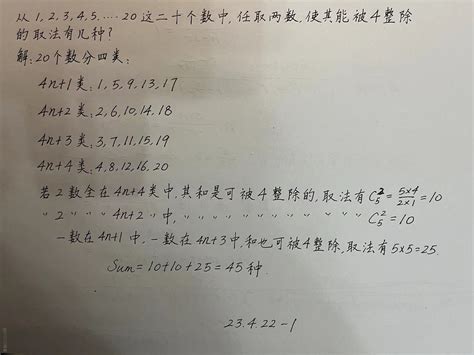 从1,2,3,4,5,····20这二十个数中,任取两数,使其能被4整除
的取法有几种?
解:20个数分四类:
4n+1类:1,5,9,13,17
4n+2类:2,6,10,14,18
4n+3类:3,7,11,15,19
4n+4类:4,8,12,16,20
若2数全在4n+4类中,其和是可被4整除的,取法有C₅²=5×4/2×1=10
〃 2 〃 〃 〃 4n+2 〃 中, 〃 〃 〃 〃 〃 〃 〃 〃 〃 〃 C₅²=10
一数在4n+1中,一数在4n+3中,和也可被4整除,取法有5×5=25.
Sum=10+10+25=45种.
23.4.22-1